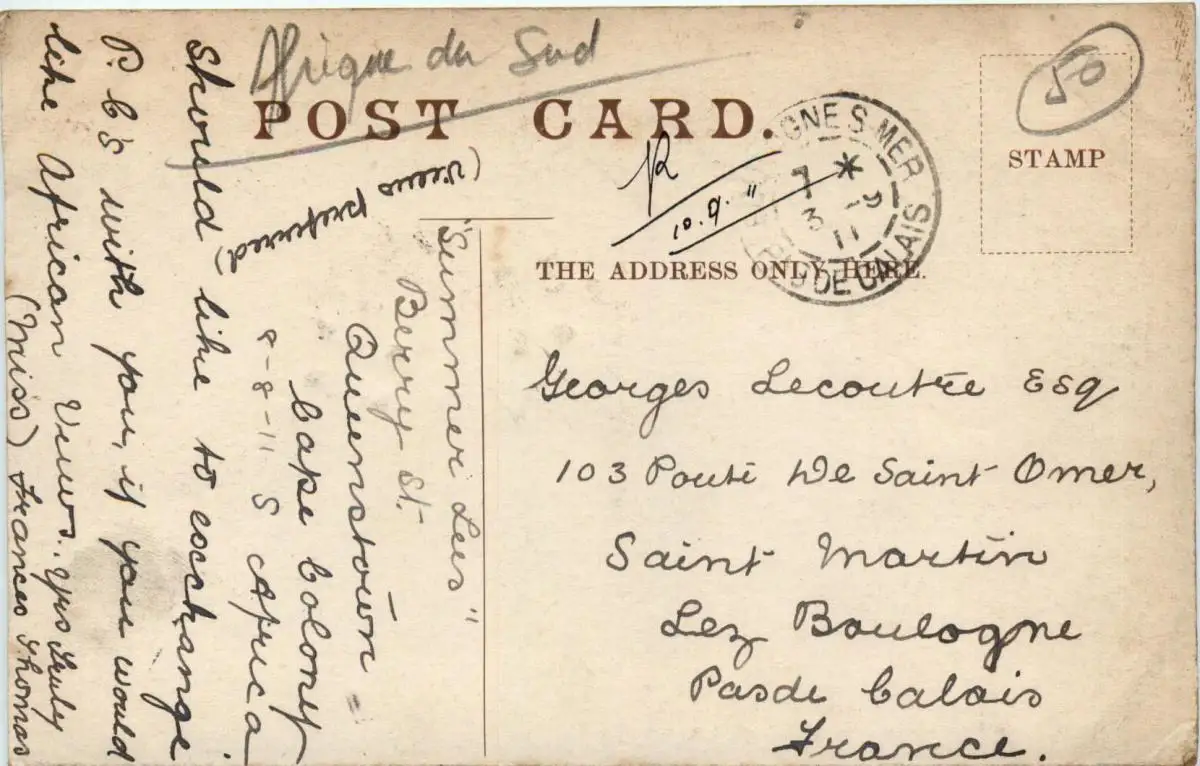 Afrique du Sud
POST CARD.
50
STAMP
R
10.9.11
GNE S MER
7 *
3 -9
11
DE CALAIS
THE ADDRESS ONLY HERE.
"Summer Lees"
Berry St.
Queenstown
Cape Colony
8-8-11 S Africa
(views preferred)
Should like to exchange
P. C's with you, if you would
like African Views. Yrs truly
(Miss) Frances Thomas
Georges Lecoutre Esq
103 Route De Saint Omer,
Saint Martin
Lez Boulogne
Pas de Calais
France.